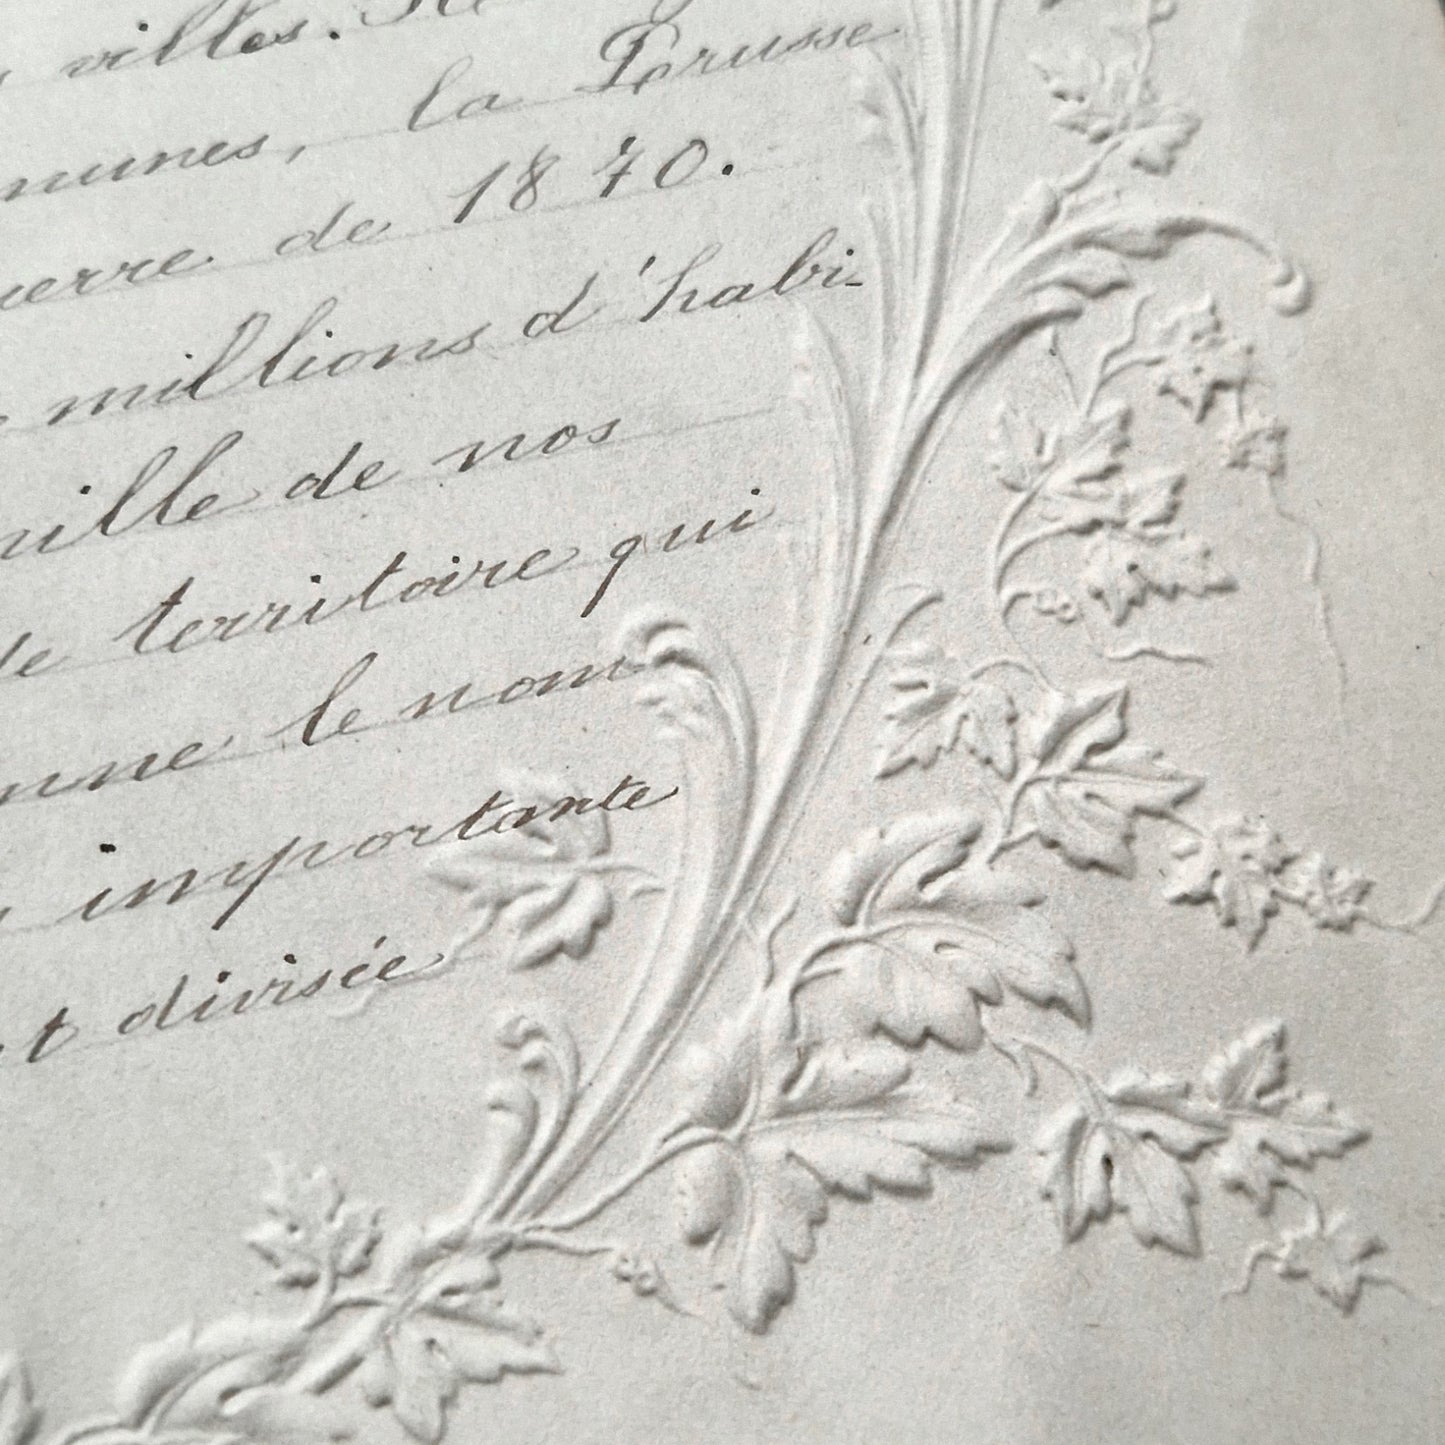 villes.
munes, la Prusse
uerre de 1870.
millions d'habi-
mille de nos
de territoire qui
nne le nom
importante
t divisée